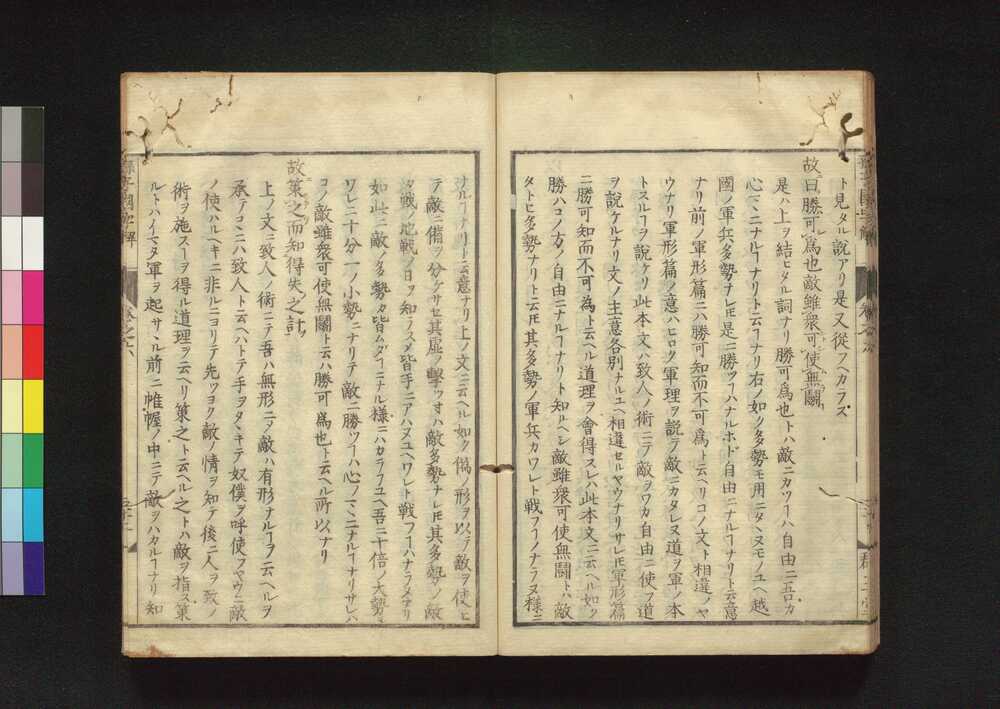 ト見タル説アリ是又從フヘカラス
故曰勝可爲也敵雖衆可使無鬬
是ハ上ヲ結ヒタル詞ナリ勝可爲也トハ敵ニカツヿハ自由ニ吾カ
心ノマヽニナルヿナリト云ヿナリ右ノ如ク多勢モ用ニタヽヌモノユヘ越
國ノ軍兵多勢ナレ𪜈是ニ勝ツヿハナルホト自由ニナルヿナリト云意
ナリ前ノ軍形篇ニハ勝可知而不可爲ト云ヘリコノ文ト相違ノヤ
ウナリ軍形篇ノ意ハヒロク軍理ヲ説テ敵ニカタレヌ道ヲ軍ノ本
トスルヿヲ説ケリ此本文ハ致人ノ術ニテ敵ヲワカ自由ニ使フ道
ヲ説ケルナリ文ノ主意各別ナルユヘ相違セルヤウナリサレ𪜈軍形篇
ニ勝可知而不可為ト云ヘル道理ヲ會得スレハ此本文ニ云ヘル如ク
勝ハコノ方ノ自由ニナルヿナリト知ルヘシ敵雖衆可使無鬬トハ敵
タトヒ多勢ナリト云𪜈其多勢ノ軍兵カワレト戰フヿノナラヌ様ニ
ナルヿナリト云意ナリ上ノ文ニ云ヘル如ク僞ノ形ヲ以テ敵ヲ使ヒ
テ敵ニ備ヲ分ケサセ其虚ヲ擊ツオハ敵多勢ナレ𪜈其多勢ノ敵
タ戰ノ地戰ノ日ヲ知ラスメ皆手ニアハヌユヘワレト戰フヿハナラヌナリ
如此ニ敵ノ多勢カ皆ムダイニナル様ニハカラフユヘ吾ニ十倍ノ大勢モ
ワレニ十分一ノ小勢ニナリテ敵ニ勝ツヿハ心ノマヽニナルヿナリサレハ
コソ敵雖衆可使無鬬ト云ハ勝可爲也ト云ヘル所以ナリ
故策之而知得失之計
上ノ文ニ致人ノ術ニテ吾ハ無形ニメ敵ハ有形ナルヿヲ云ヘルヲ
承テコヽニハ致人ト云ヘハトテ手ヲタヽキテ奴僕ヲ呼使フヤウニ敵
ノ使ハルヘキニ非ルニヨリテ先ツヨク敵ノ情ヲ知テ後ニ人ヲ致ノ
術ヲ施スヿヲ得ル道理ヲ云ヘリ策之ト云ヘル之トハ敵ヲ指ス策
ルトハイマタ軍ヲ起サヽル前ニ帷幄ノ中ニテ敵ヲハカルヿナリ知
孫子國字解
卷之六